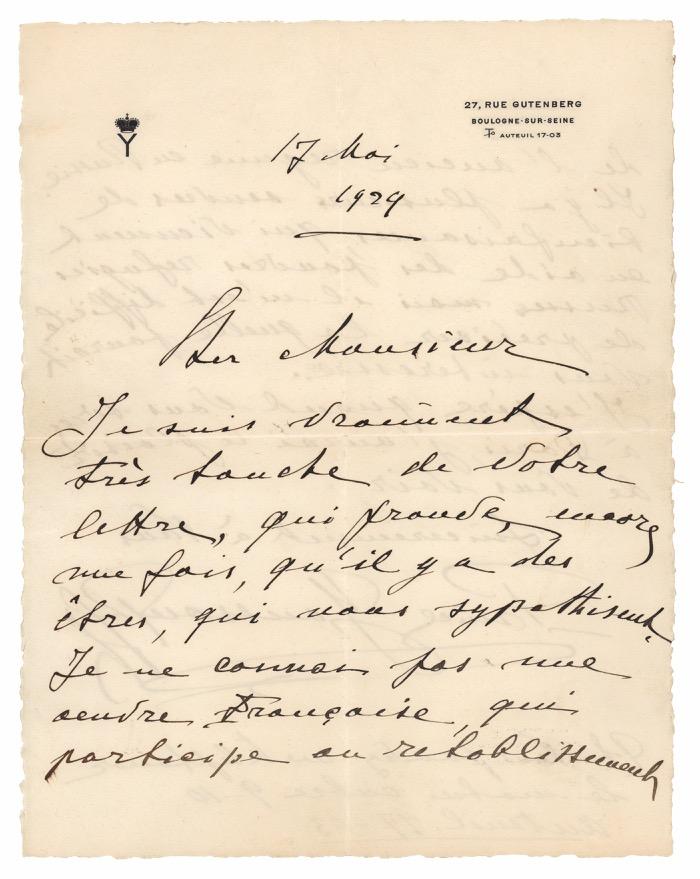 Y
27, RUE GUTENBERG
BOULOGNE-SUR-SEINE
To AUTEUIL 17-03
17 Mai
1929
Cher Monsieur
Je suis vraiment
très touche de votre
lettre, qui prouve, encore
une fois, qu'il y a des
êtres, qui nous sypathisent.
Je ne connai pas une
oeudre Française, qui
participe au retablissement